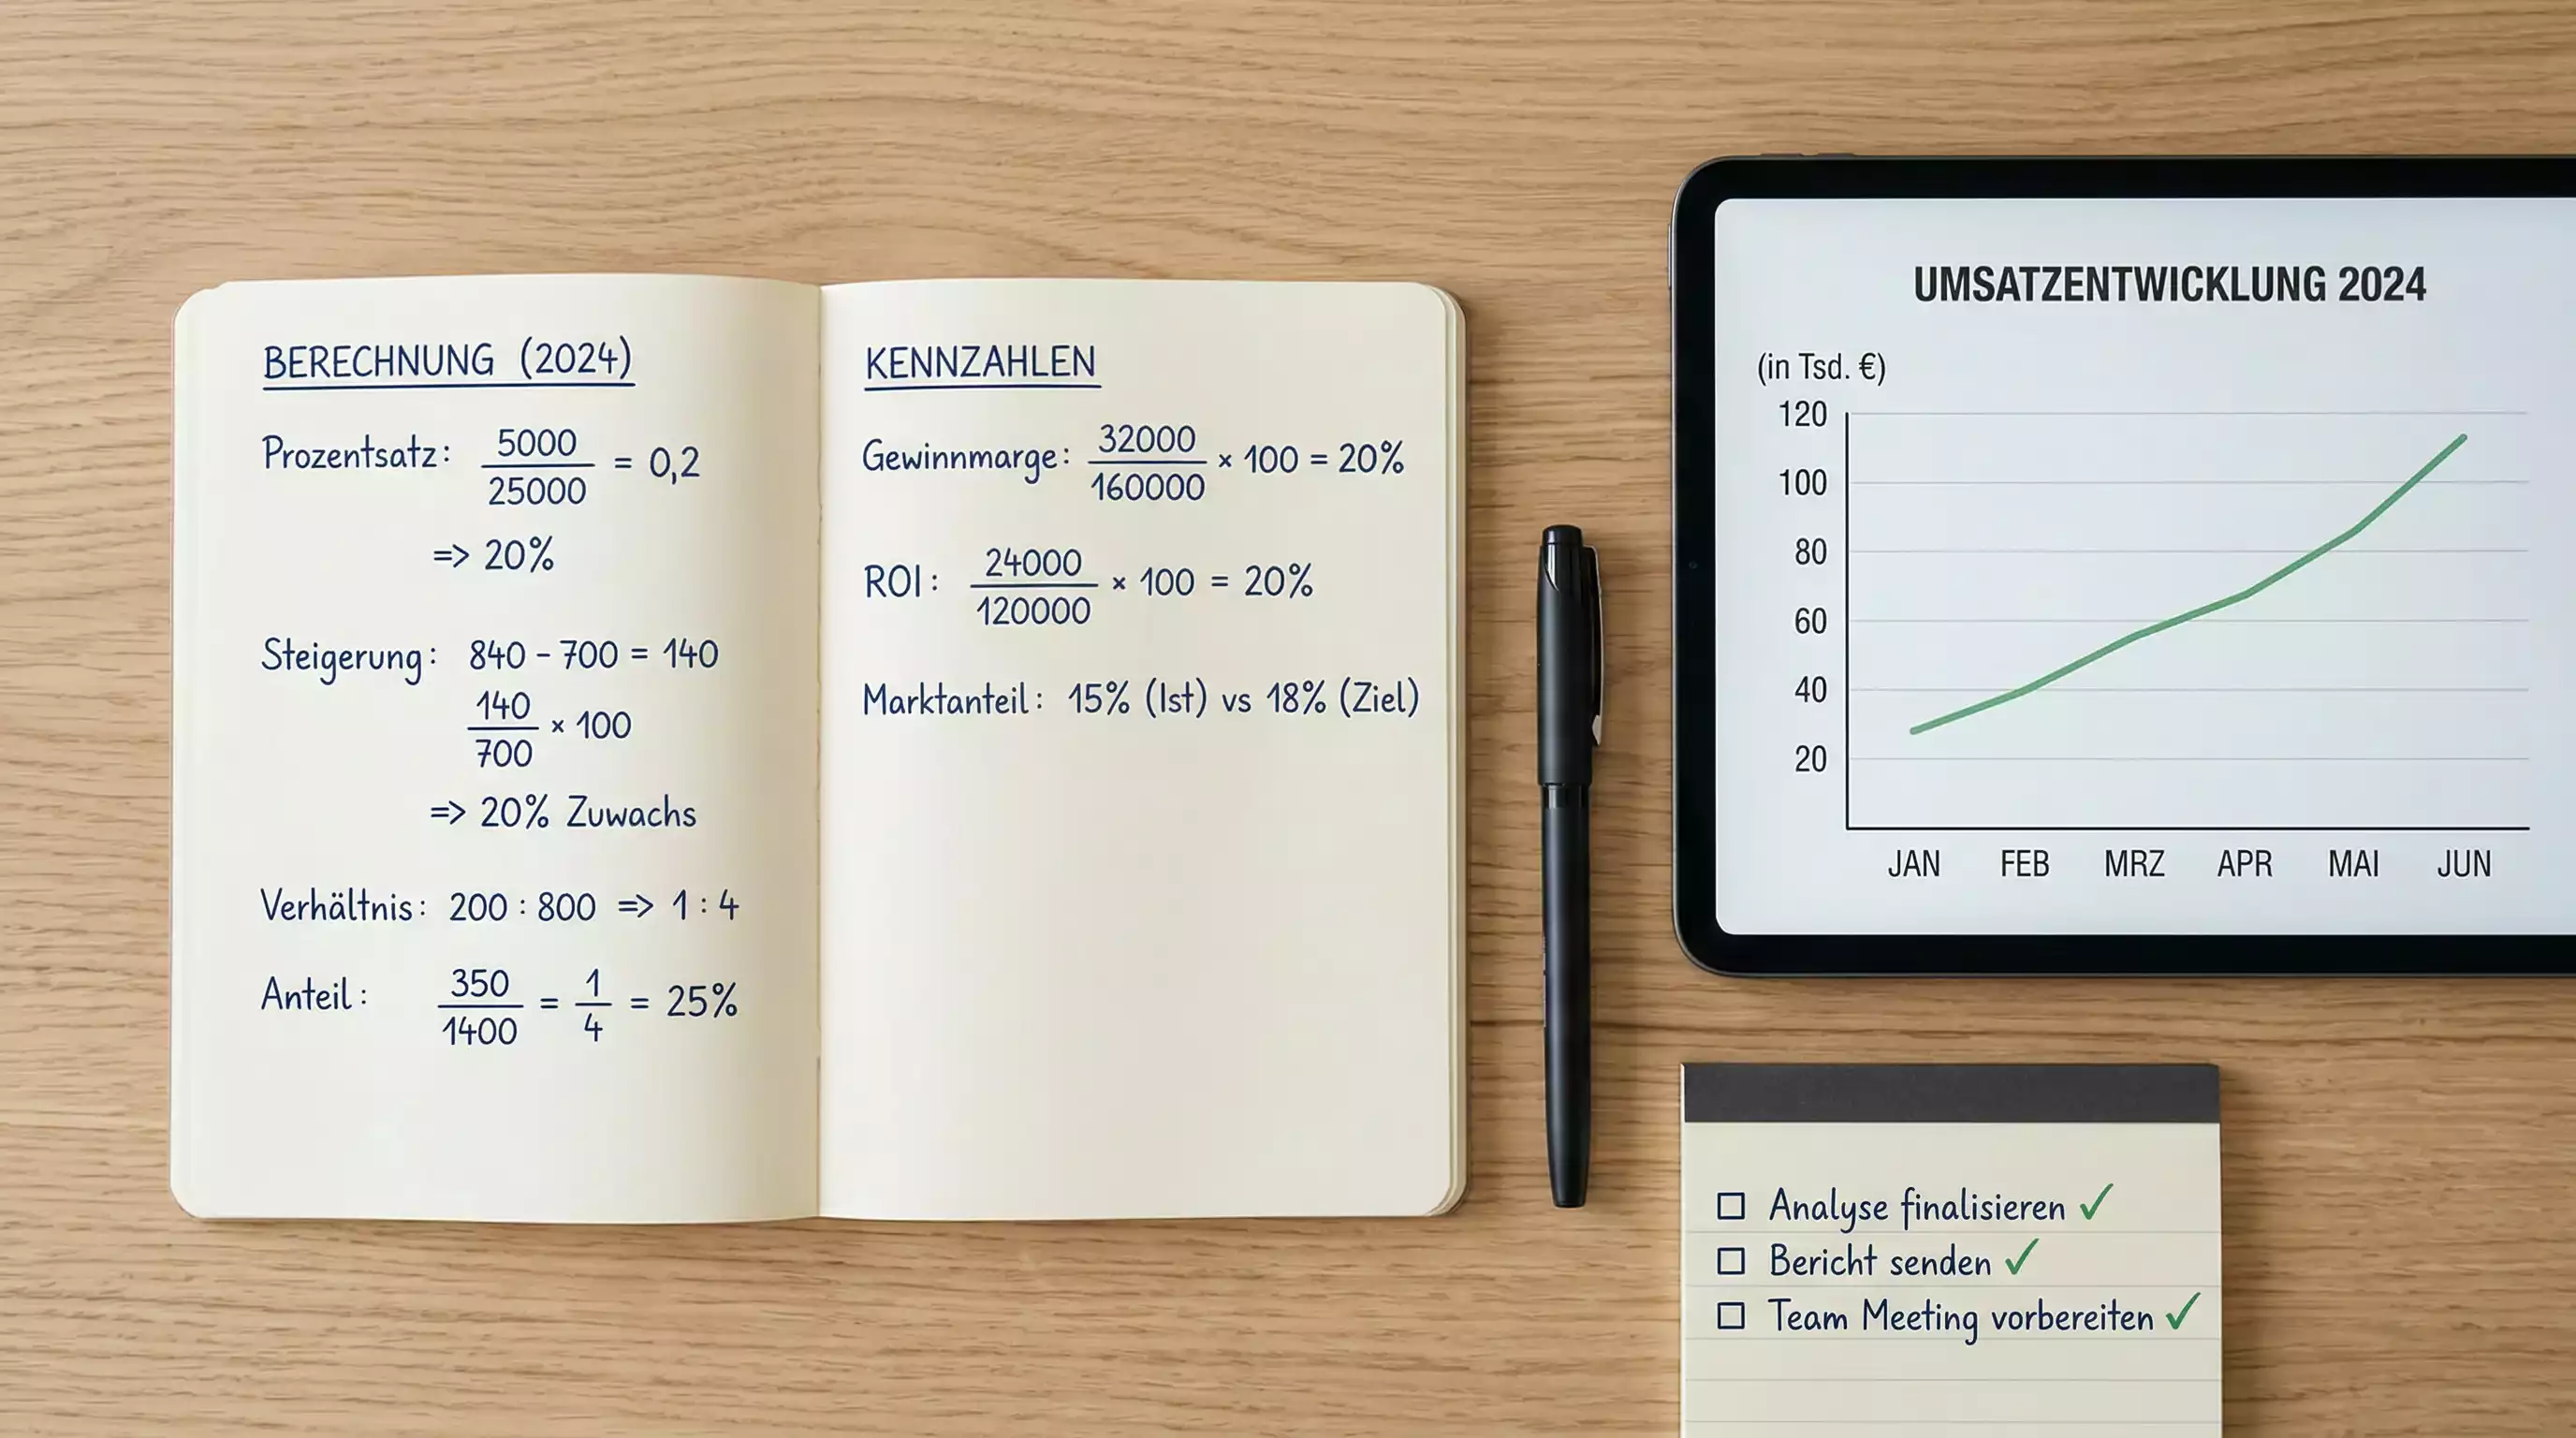 BERECHNUNG (2024)
Prozentsatz: 5000/25000 = 0,2
=> 20%
Steigerung: 840 - 700 = 140
140/700 × 100
=> 20% Zuwachs
Verhältnis: 200 : 800 => 1 : 4
Anteil: 350/1400 = 1/4 = 25%
KENNZAHLEN
Gewinnmarge: 32000/160000 × 100 = 20%
ROI: 24000/120000 × 100 = 20%
Marktanteil: 15% (Ist) vs 18% (Ziel)
UMSATZENTWICKLUNG 2024
(in Tsd. €)
120
100
80
60
40
20
JAN FEB MRZ APR MAI JUN
☐ Analyse finalisieren ✓
☐ Bericht senden ✓
☐ Team Meeting vorbereiten ✓